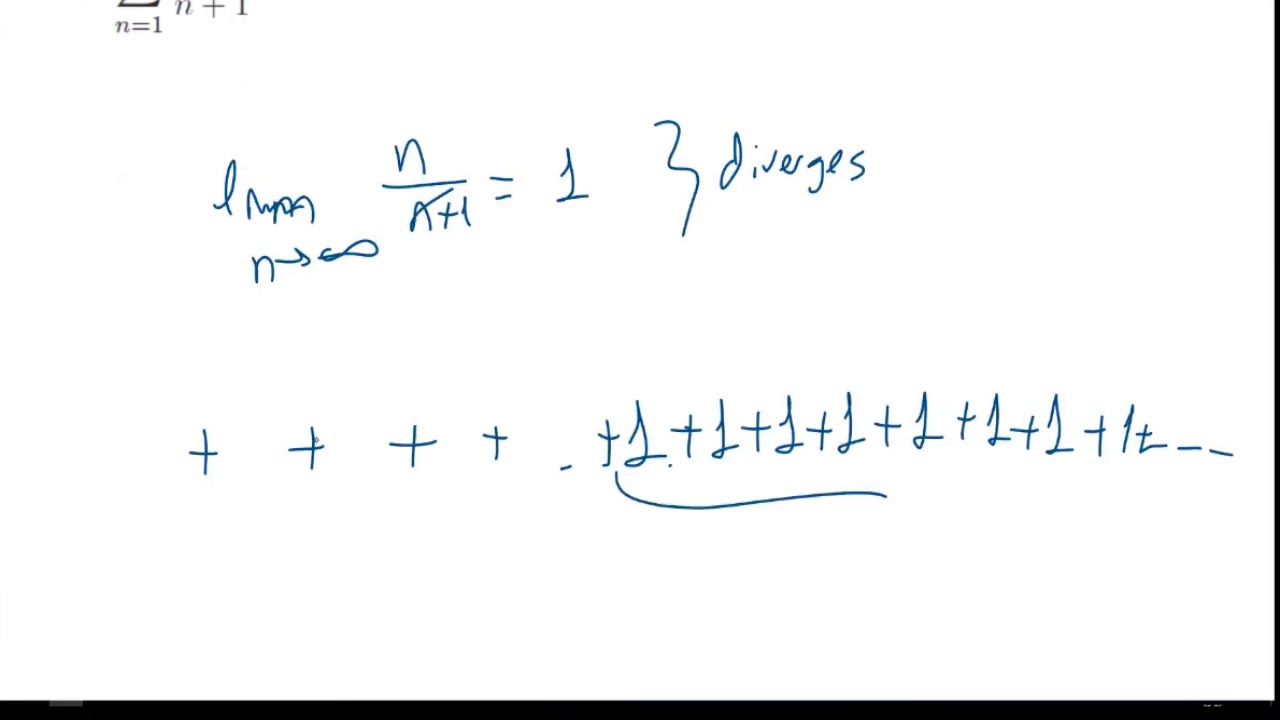 ∑ n + 1
n=1
lim n/n+1 = 1 } diverges
n→∞
+ + + + . +1 +1 +1 +1 +1 +1 +1 +1 + - - -